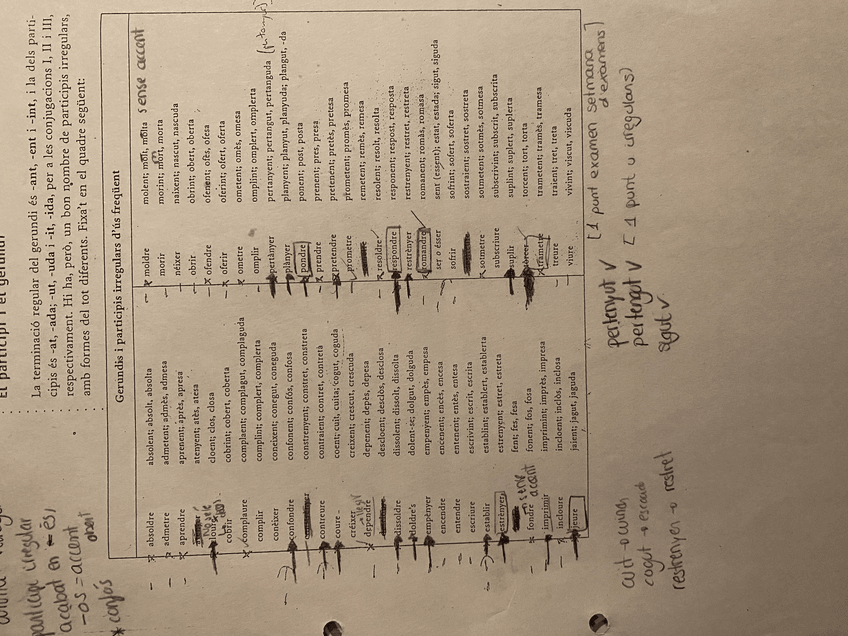 El participi i el gerundi
La terminació regular del gerundi és -ant, -ent i -int, i la dels parti-
cipis és -at, -ada; -ut, -uda i -it, -ida, per a les conjugacions I, II i III,
respectivament. Hi ha però, un bon nombre de participis irregulars,
amb formes del tot diferents. Fixa't en el quadre següent:
participi irregular
acabat en és,
-os = accent
obert
* confós
Gerundis i participis irregulars d'ús freqüent
absoldre absolent; absolt, absolta
admetre admetent; admès, admesa
aprendre aprenent; après, apresa
atenyent; atès, atesa
cloure cloent; clos, closa
cobrir cobrint; cobert, coberta
complaure complaent; complagut, complaguda
complir complint; complert, complerta
conèixer coneixent; conegut, coneguda
confondre confonent; confós, confosa
constrenyent; constret, constreta
contreure contraient; contret, contreta
coure coent; cuit, cuita; cogut, coguda
créixer creixent; crescut, crescuda
dependre depenent; depès, depesa
descloent; desclòs, desclosa
dissoldre dissolent; dissolt, dissolta
doldre's dolent-se; dolgut, dolguda
empènyer empenyent; empès, empesa
encendre encenent; encès, encesa
entendre entenent; entès, entesa
escriure escrivint; escrit, escrita
establir establint; establert, establerta
estrènyer estrenyent; estret, estreta
fent; fet, fesa
fondre fonent; fos, fosa
sense accent
imprimir imprimint; imprès, impresa
incloure incloent; inclòs, inclosa
jeure jaient; jagut, jaguda
moldre molent; mòlt, mòlta sense accent
morir morint; mort, morta
néixer naixent; nascut, nascuda
obrir obrint; obert, oberta
ofendre ofenent; ofès, ofesa
oferir oferint; ofert, oferta
ometre ometent; omès, omesa
omplir omplint; omplert, omplerta
pertànyer pertanyent; pertangut, pertanguda
plànyer planyent; planyut, planyuda; plangut, -da
pondre ponent; post, posta
prendre prenent; pres, presa
pretendre pretenent; pretès, pretesa
prometre prometent; promès, promesa
remetent; remès, remesa
resoldre resolent; resolt, resolta
respondre responent; respost, resposta
restrènyer restrenyent; restret, restreta
romandre romanent; romàs, romasa
ser o ésser sent (essent); estat, estada; sigut, siguda
sofrir sofrint; sofert, soferta
sostraient; sostret, sostreta
sotmetre sotmetent; sotmès, sotmesa
subscriure subscrivint; subscrit, subscrita
suplir suplint; suplert, suplerta
torcent; tort, torta
trametre trametent; tramès, tramesa
treure traient; tret, treta
viure vivint; viscut, viscuda
cuit → cuinar
cogut →
restrenyer → restret
pertenyut ✓ [1 punt examen setmana
d'examens]
pertengut ✓ [1 punt u irregulars]
sigut ✓